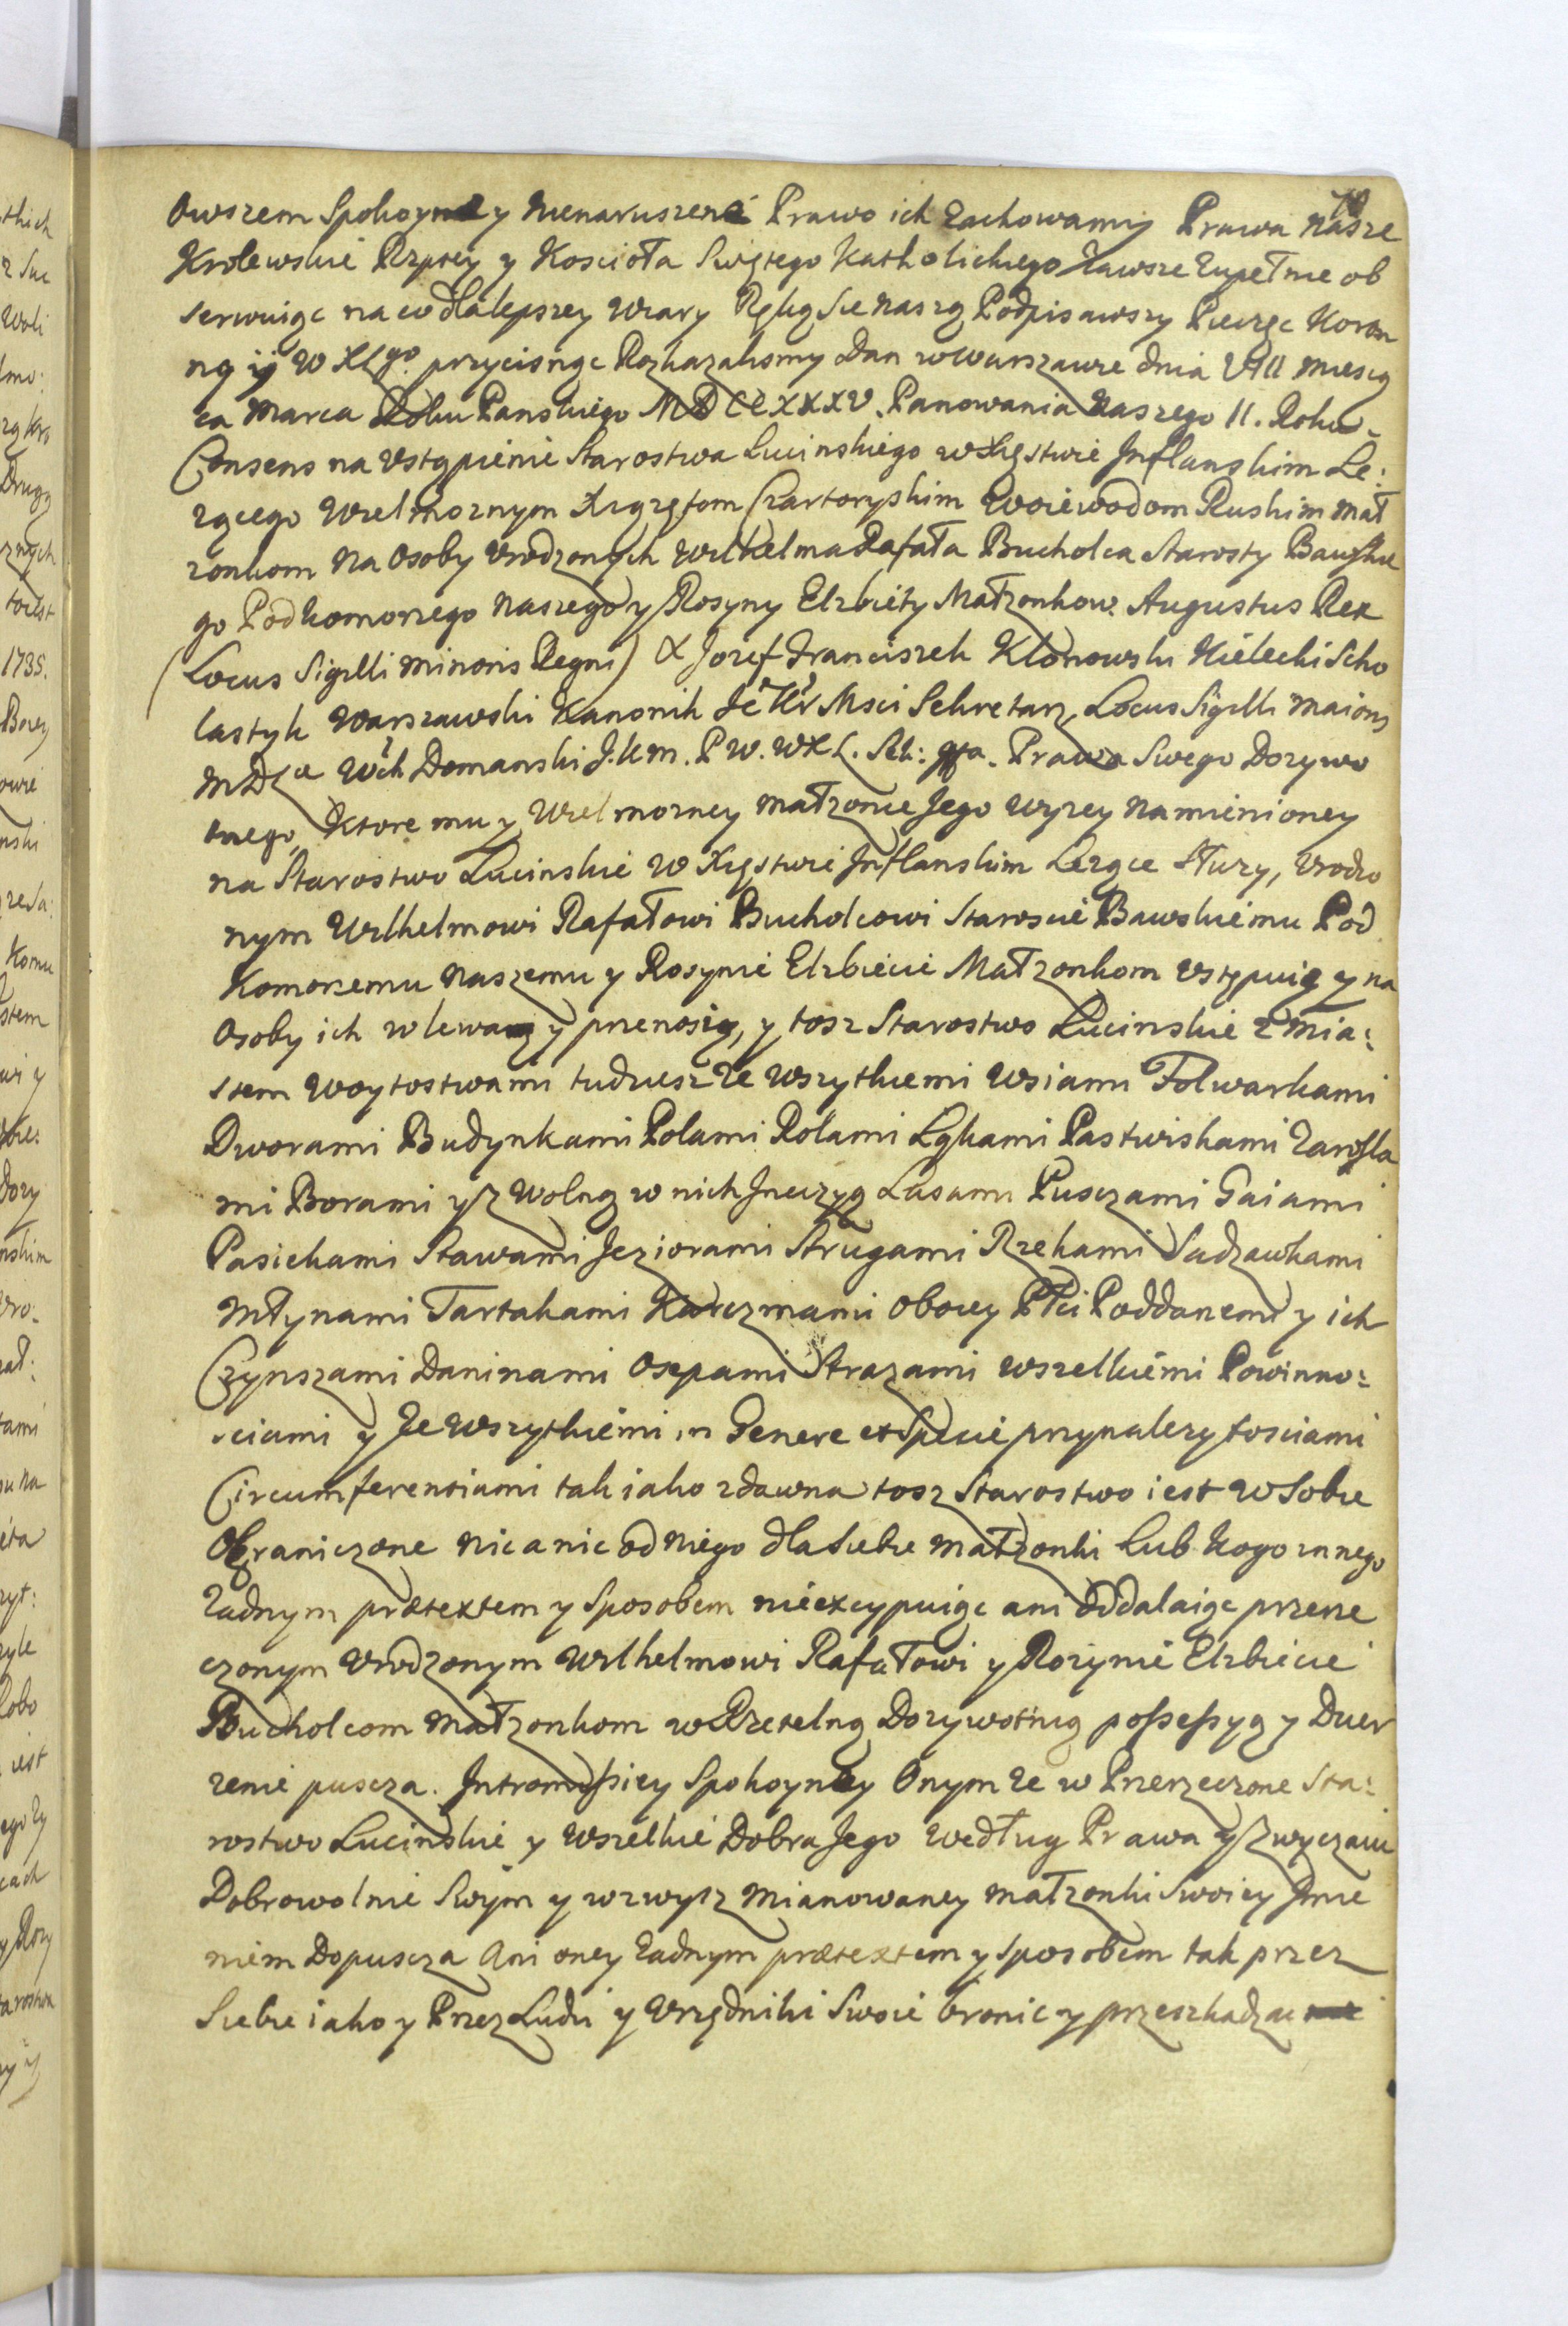 Owszem Spokoyne y nienaruszené Prawo ich zachowamy Prawa nasze
Krolewskié Rzptey y Koscioła Swiętego Katholickiego Zawsze Zupełnie ob
serwuiąc na co dla lepszey wiary Ręką Sie naszą Podpisawszy Pieczęc Koron
ną ÿ W XLgo przycisnąc Rozkazalismy Dan w Warszawie dnia VIII miesią
ca Marca Roku Panskiego MDCCXXXV. Panowania Naszego II. Roku.
Consens na Vstąpienié Starostwa Lucinskiego w Xięstwié Jnflanskim Le:
zącego Wielmoznym Xrązętom Czartoryskim Woiéwodom Ruskim Mał
zonkom Na Osoby Vrodzonych Wilhelma Rafała Bucholca Starosty Bauskie
go Podkomorzego Naszego y Rosyny Elzbiéty Małzonkow. Augustus Rex
(Locus Sigilli Minoris Regni) X Jozef Franciszek Klonowski Kiélecki Scho
lastyk Warszawski Kanonik Je Kr Msci Sekretarz, Locus Sigilli Maioris
MDL W Domanski J.K.M. P W. WXL. Sek: Prawa Swego Dozywo
tnego, Ktore mu y Wielmozney Małzonce Jego wyzey Namiénioney
na Starostwo Lucinskié W Xięstwié Jnflanskim Lezące Słuzy, Vrodzo
nym Wilhelmowi Rafałowi Bucholcowi Staroscié Bawskiému Pod
Komorzemu Naszemu y Rosynié Elzbiécié Małzonkom Vstępuią y na
Osoby ich wlewaią y przenoszą, y tosz Starostwo Lucinskié z Mia:
stem Woytostwami tudziesz Ze Wszytkiemi Wsiami Folwarkami
Dworami Budynkami Polami Rolami Łąkami Pastwiskami Zarosla
mi Borami y z Wolną w nich Jncizyą Lasami Pusczami Gaiami
Pasiekami Stawami Jeziorami Strugami Rzekami Sadzawkami
Młynami Tartakami Karczmami Oboiey Płci Poddanemi y ich
Czynszami Daninami Osepami Strazami wszelkiémi Powinno:
sciami y Ze Wszytkiémi in Genere et Specié przynalezytosciami
Circumferensiami tak iako zdawna tosz Starostwo iest w Sobie
Ograniczone nic a nic od niego dla Siebie Małzonki Lub Kogo innego
Zadnym prætextem y Sposobem niéexcypuiąc ani Oddalaiąc przerze
czonym Vrodzonym Wilhelmowi Rafałowi y Rozynié Elzbiecié
Bucholcom Małzonkom w Rzetelną Dozywotnią possessyą y Dzier
zenié puscza. Jntromissiey Spokoyney Onym Ze w Przerzeczone Sta:
rostwo Lucinskié y Wszelkié Dobra Jego według Prawa y Zwyczaiu
Dobrowolnié Swym y wzwysz Mianowaney Małzonki Swoiey Jmie
niém Dopuscza Ani oney Zadnym prætextem y sposobém tak przez
Siebie iako y Przez Ludzi y Vrzędniki Swoié bronic y przeszkadzac